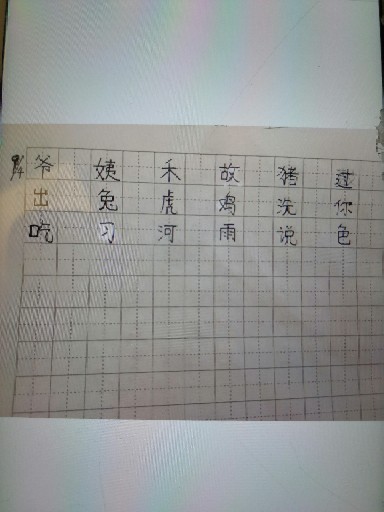 9/4 爷 姨 禾 故 猪 过
出 兔 虎 鸡 洗 你
吃 习 河 雨 说 色